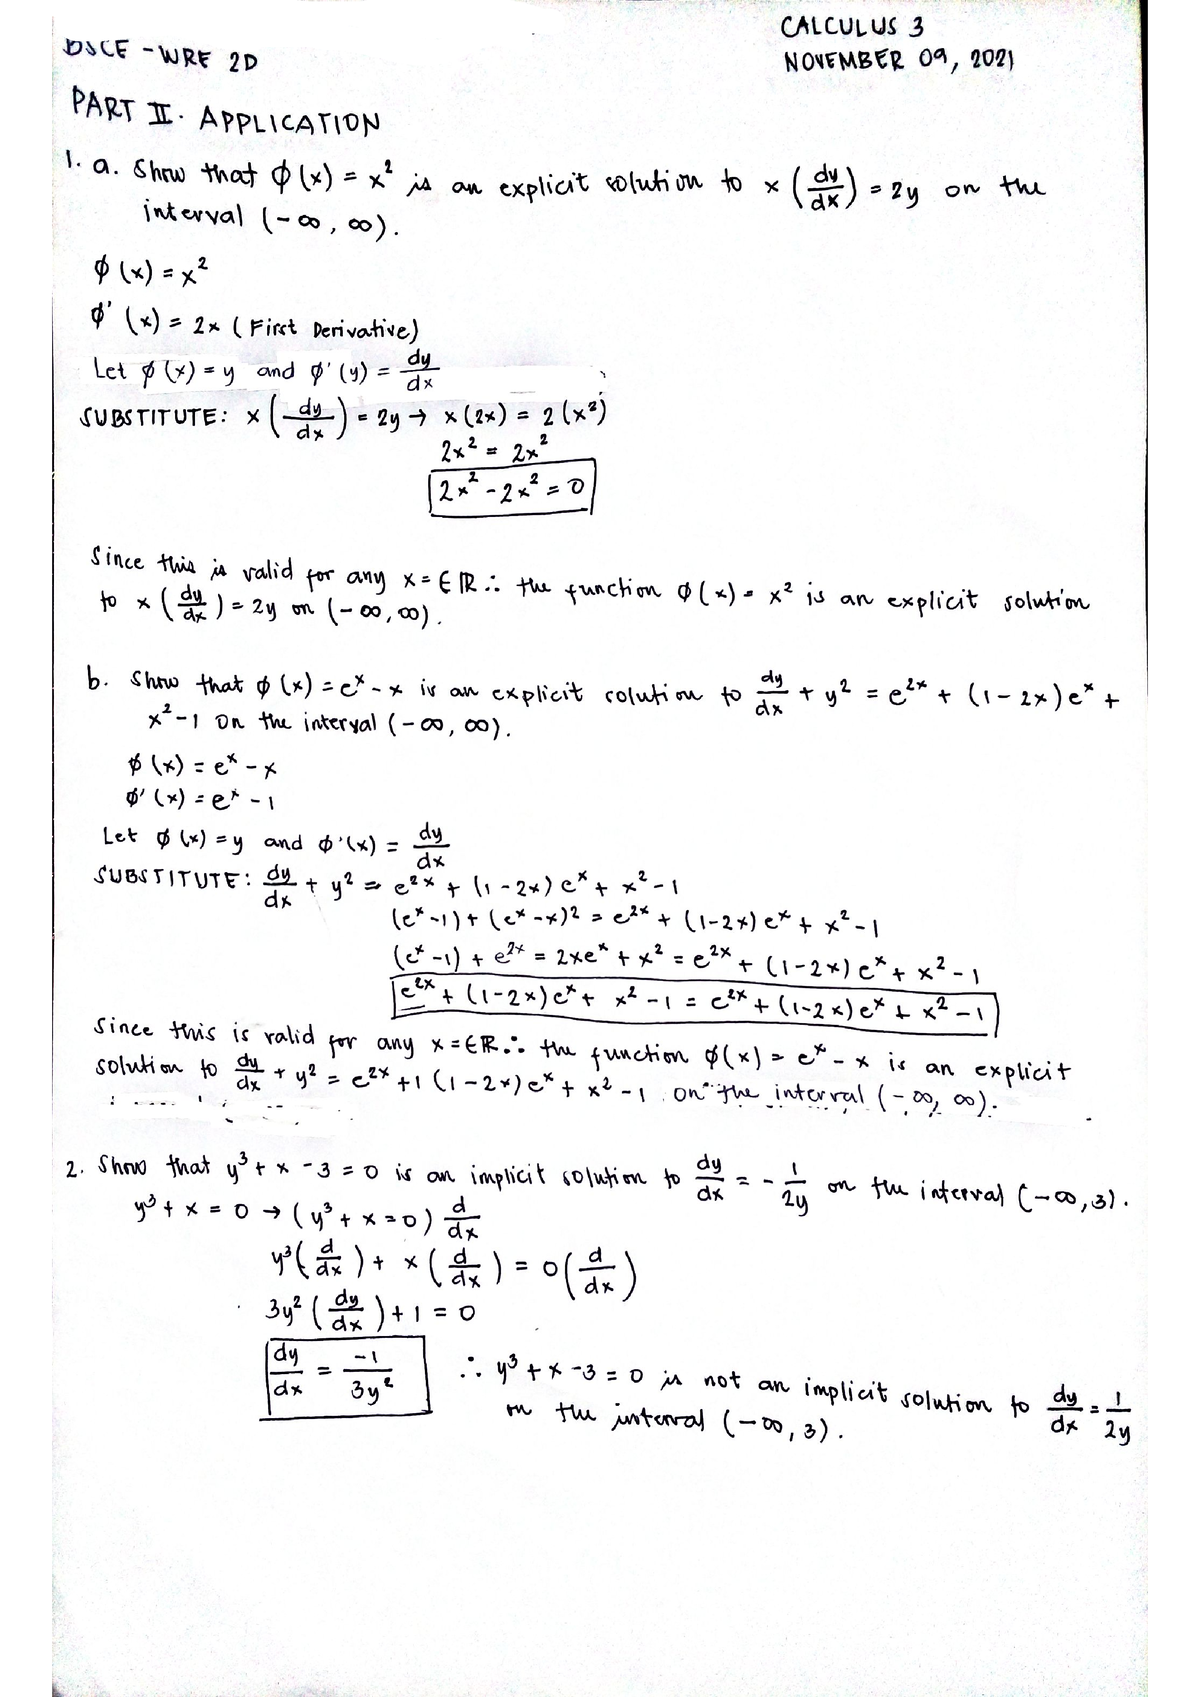 CALCULUS 3
BSCE - WRE 2D
NOVEMBER 09, 2021
PART II. APPLICATION
1. a. Show that ϕ(x) = x² is an explicit solution to x (dy/dx) = 2y on the
interval (-∞, ∞).
ϕ(x) = x²
ϕ'(x) = 2x (First Derivative)
Let ϕ(x) = y and ϕ'(y) = dy/dx
SUBSTITUTE: x (dy/dx) = 2y → x(2x) = 2(x²)
2x² = 2x²
2x² - 2x² = 0
Since this is valid for any x = ∈ ℝ ∴ the function ϕ(x) = x² is an explicit solution
to x (dy/dx) = 2y on (-∞, ∞).
b. Show that ϕ(x) = eˣ - x is an explicit solution to dy/dx + y² = e²ˣ + (1 - 2x)eˣ +
x² - 1 on the interval (-∞, ∞).
ϕ(x) = eˣ - x
ϕ'(x) = eˣ - 1
Let ϕ(x) = y and ϕ'(x) = dy/dx
SUBSTITUTE: dy/dx + y² = e²ˣ + (1 - 2x)eˣ + x² - 1
(eˣ - 1) + (eˣ - x)² = e²ˣ + (1-2x)eˣ + x² - 1
(eˣ - 1) + e²ˣ = 2xeˣ + x² = e²ˣ + (1-2x)eˣ + x² - 1
e²ˣ + (1-2x)eˣ + x² - 1 = e²ˣ + (1-2x)eˣ + x² - 1
Since this is valid for any x = ∈ ℝ ∴ the function ϕ(x) = eˣ - x is an explicit
solution to dy/dx + y² = e²ˣ +1 (1-2x)eˣ + x² - 1 on the interval (-∞, ∞).
2. Show that y³ + x - 3 = 0 is an implicit solution to dy/dx = - 1/2y on the interval (-∞, 3).
y³ + x = 0 → (y³ + x = 0) d/dx
y³(d/dx) + x(d/dx) = 0(d/dx)
3y² (dy/dx) + 1 = 0
dy/dx = -1/3y² ∴ y³ + x - 3 = 0 is not an implicit solution to dy/dx = 1/2y
on the interval (-∞, 3).